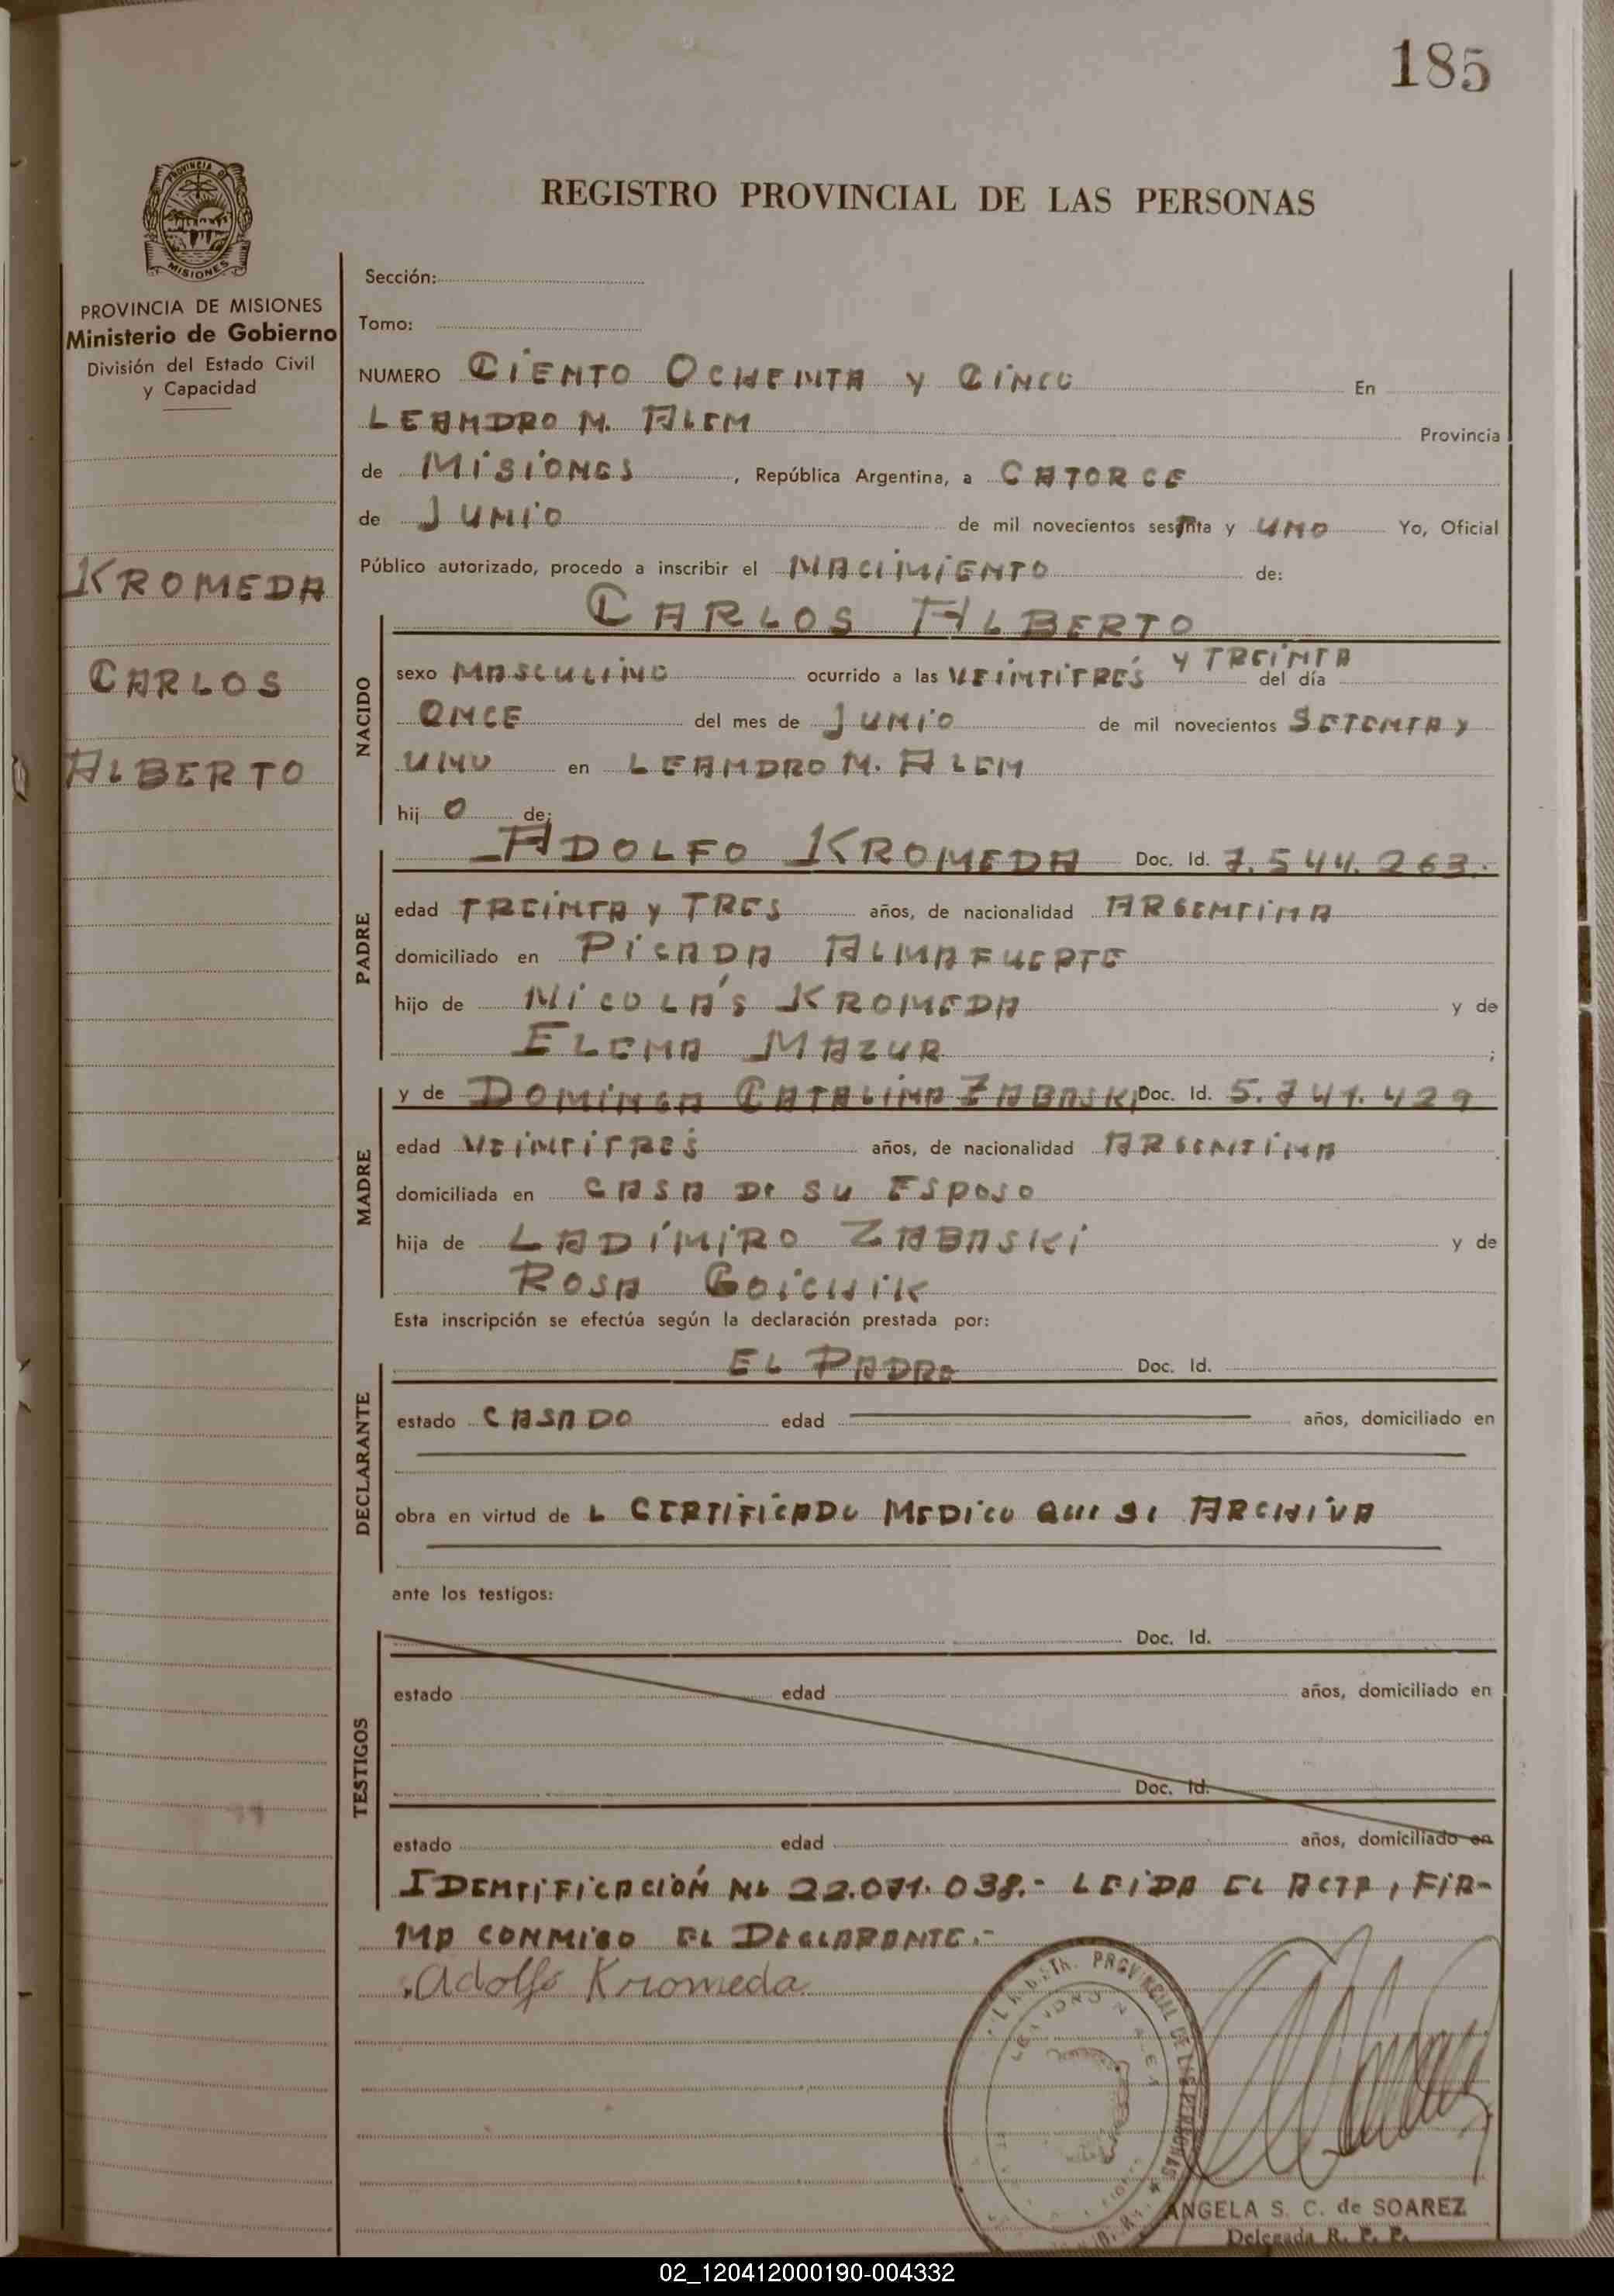 185
REGISTRO PROVINCIAL DE LAS PERSONAS
PROVINCIA DE MISIONES
PROVINCIA DE MISIONES
Ministerio de Gobierno
División del Estado Civil
y Capacidad
KROMEDA
CARLOS
ALBERTO
Sección:
Tomo:
NUMERO CIENTO OCHENTA Y CINCO En
LEANDRO N. ALEM Provincia
de MISIONES, República Argentina, a CATORCE
de JUNIO de mil novecientos sesenta y UNO Yo, Oficial
Público autorizado, procedo a inscribir el NACIMIENTO de:
CARLOS ALBERTO
NACIDO
sexo MASCULINO ocurrido a las VEINTITRÉS Y TREINTA del día
ONCE del mes de JUNIO de mil novecientos SETENTA Y
UNO en LEANDRO N. ALEM
hijO de:
PADRE
ADOLFO KROMEDA Doc. Id. 7.544.263.
edad TREINTA Y TRES años, de nacionalidad ARGENTINA
domiciliado en PICADA ALMAFUERTE
hijo de NICOLÁS KROMEDA y de
ELENA MAZUR ;
MADRE
y de DOMINGA CATALINA ZABASKI Doc. Id. 5.741.429
edad VEINTITRÉS años, de nacionalidad ARGENTINA
domiciliada en CASA DE SU ESPOSO
hija de LADIMIRO ZABASKI y de
ROSA GOICHIK
Esta inscripción se efectúa según la declaración prestada por:
DECLARANTE
EL PADRE Doc. Id.
estado CASADO edad años, domiciliado en
obra en virtud de L CERTIFICADO MEDICO QUE SE ARCHIVA
ante los testigos:
TESTIGOS
Doc. Id.
estado edad años, domiciliado en
Doc. Id.
estado edad años, domiciliado en
IDENTIFICACIÓN Nº 22.071.038.- LEIDA EL ACTA, FIR-
MA CONMIGO EL DECLARANTE.-
Adolfo Kromeda
PROVINCIAL DE LAS PERSONAS
LEANDRO N ALEM
ANGELA S. C. de SOAREZ
Delegada R. P. P.
02_120412000190-004332